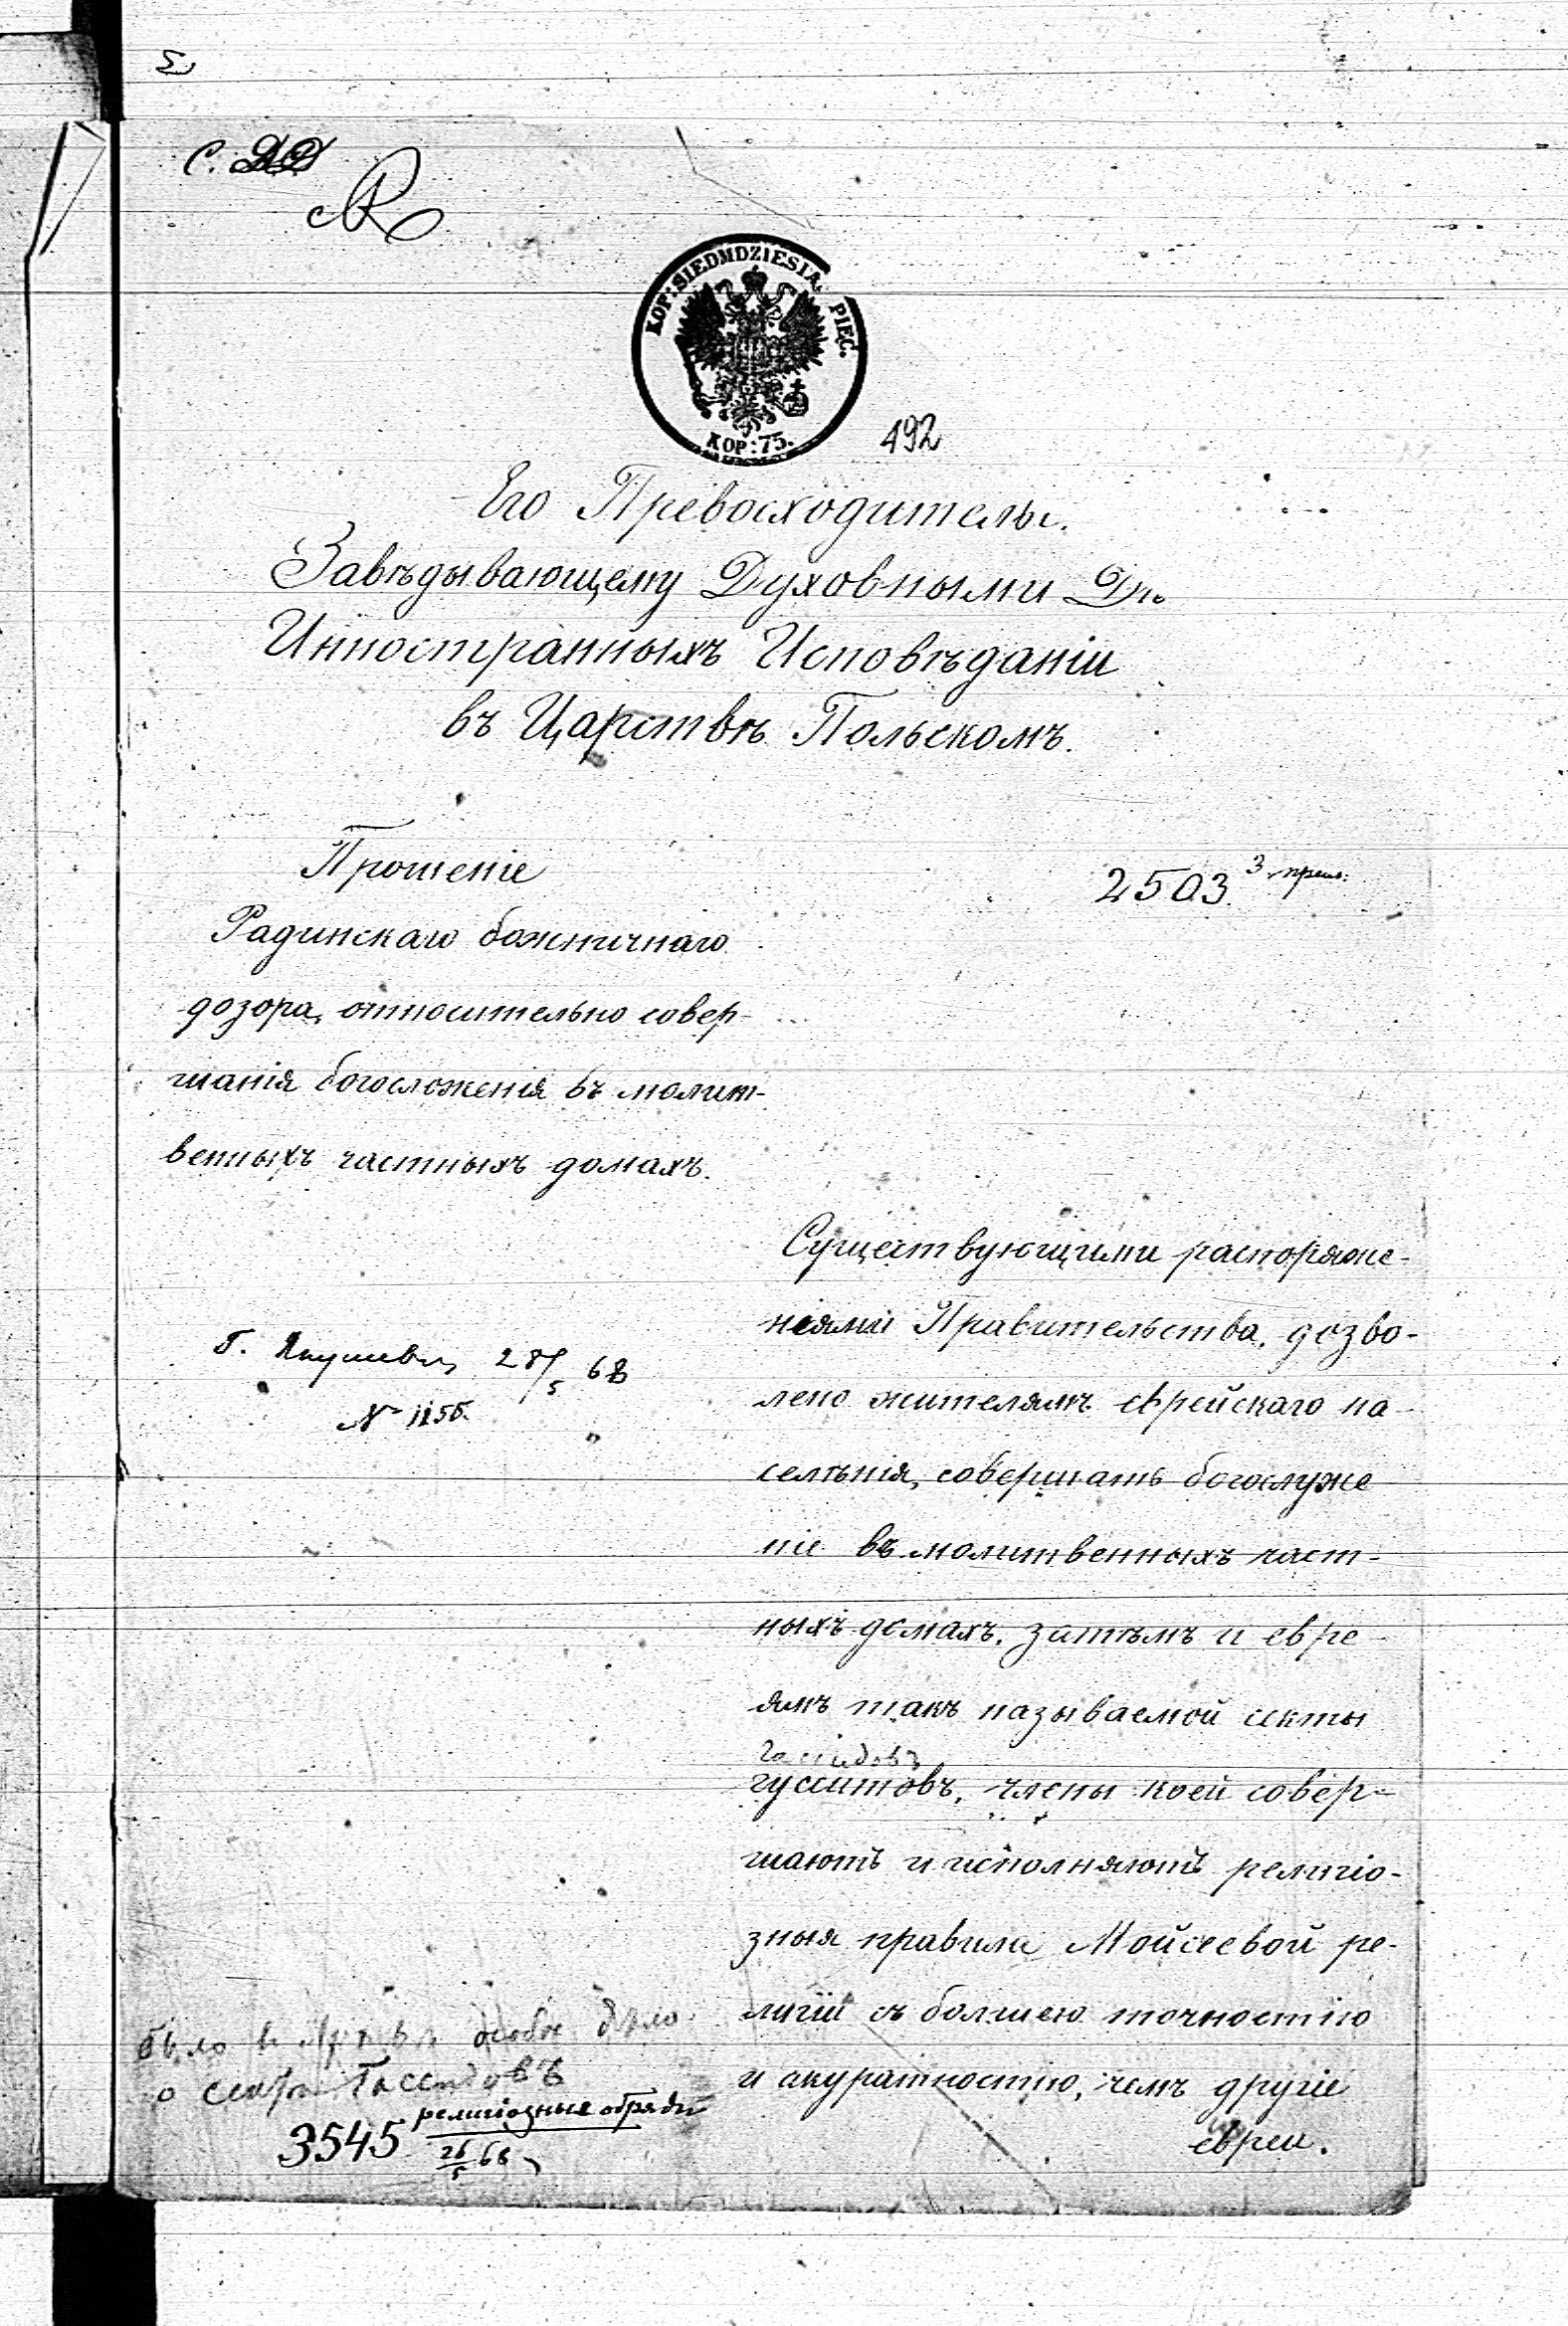 С.
KOP: SIEDMDZIESIĄ. PIĘC.
KOP: 75.
492
Его Превосходительс.
Завѣдывающему Духовными Дѣ
Инностранныхъ Исповѣданіи
въ Царствѣ Польскомъ.
Прошеніе
Радинскаго божничнаго
дозора, относительно совер-
шанія богосложенія въ молит-
венныхъ частныхъ домахъ.
2503 3 прил:
Г. Якушевичъ 28/5 68
№ 1155.
Существующими распоряже-
ніями Правительства, дозво-
лено жителямъ еврейскаго на-
селѣнія, совершать богослуже
ніе въ молитвенныхъ част-
ныхъ домахъ, затѣмъ и евре-
ямъ такъ называемой секты
Гассидовъ
гусситовъ, члены коей совер-
шаютъ и исполняютъ религіо-
зныя правила Мойсеевой ре-
лигіи съ болшею точностію
и акуратностію, чемъ другіе
евреи.
было в особое дѣло
о сектѣ Гассидовъ
3545 религіозные обряды
26/5 68